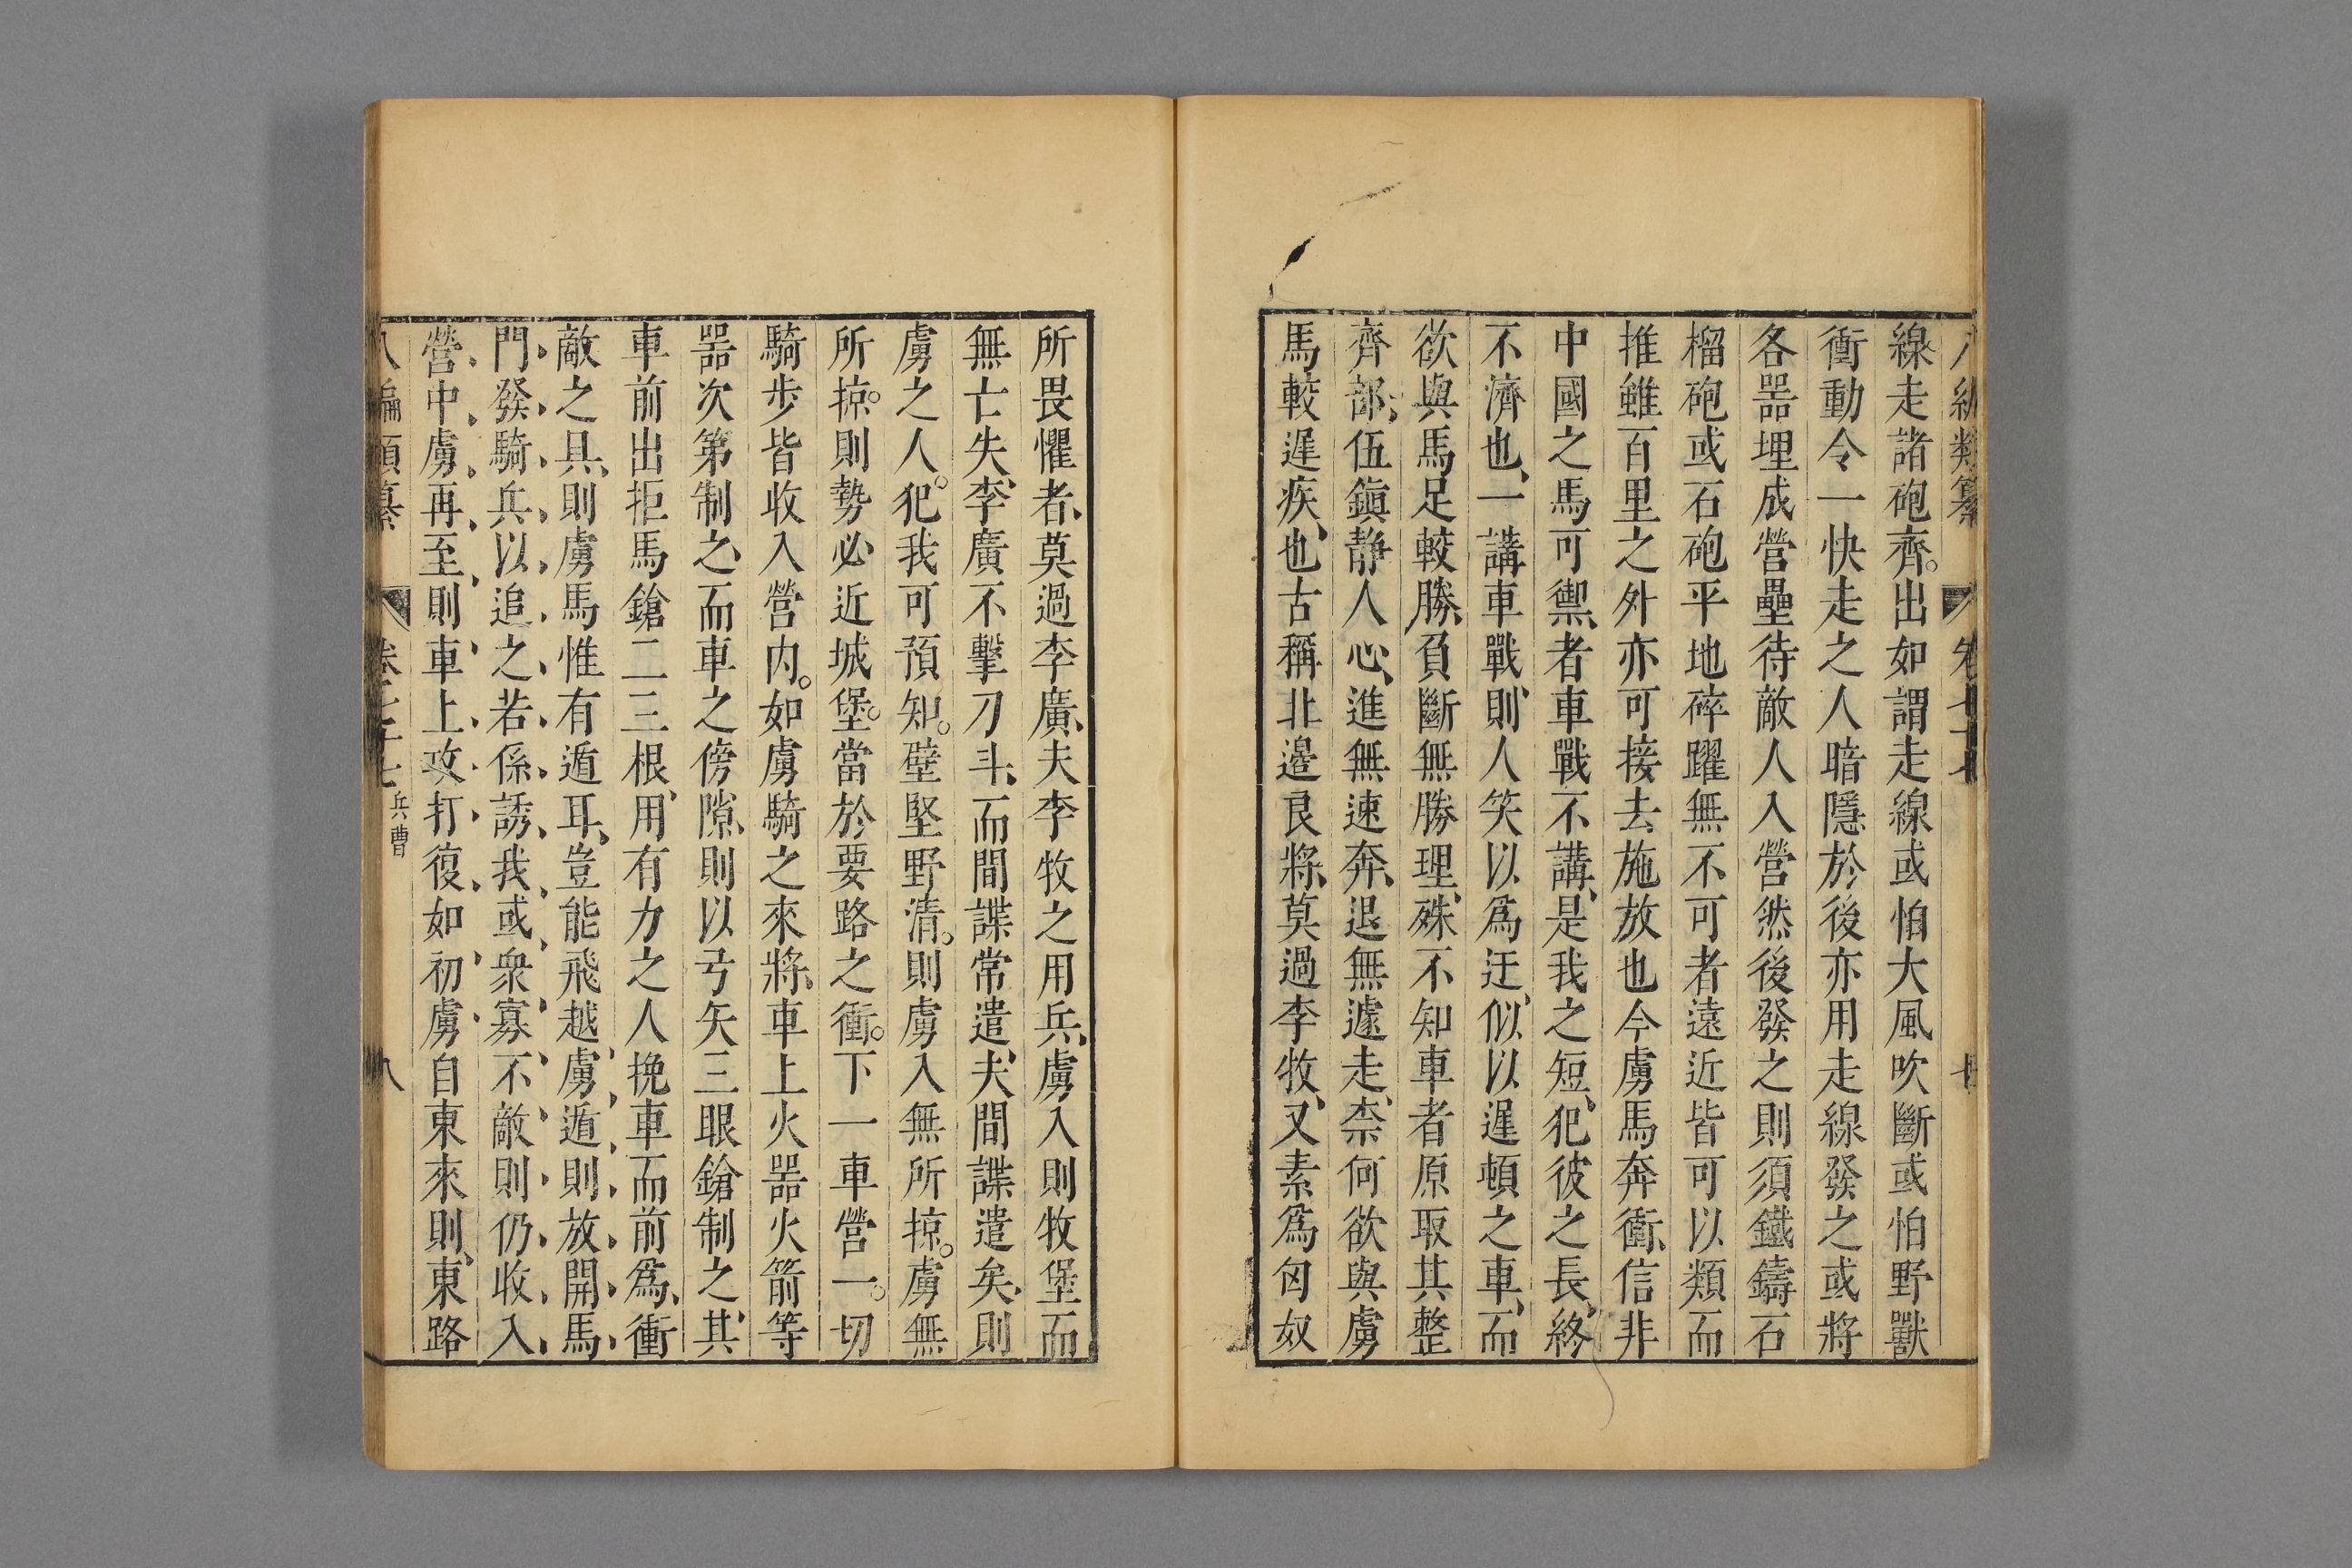 線走諸砲齊。出如謂走線或怕大風吹斷或怕野獸
衝動令一快走之人暗隱於後亦用走線發之或將
各噐埋成營壘待敵人入營然後發之則須鐵鑄石
榴砲或石砲平地碎躍無不可者遠近皆可以類而
推雖百里之外亦可接去施放也今虜馬奔衝、信非
中國之馬可禦、者車戰不講、是我之短、犯彼之長、終
不濟也、一講車戰、則人笑以爲迂、似以遲頓之車、而
欲與馬足較勝、負斷無勝理、殊不知車者原取其整
齊部、伍鎮静人心、進無速奔、退無遽走、柰何欲與虜
馬較遲疾、也古稱北邊良將、莫過李牧、又素爲匈奴
所畏懼者、莫過李廣、夫李牧之用兵、虜入則牧堡而
無亡失、李廣不擊刀斗、而間諜常遣、夫間諜遣矣、則
虜之人。犯我可預知。壁堅野清。則虜入無所掠。虜無
所掠。則勢必近城堡。當於要路之衝。下一車營一。切
騎步皆收入營内。如虜騎之來將、車上火噐火箭等
噐次第制之、而車之傍隙、則以弓矢三眼鎗制之、其
車前出拒馬鎗二三根、用有力之人挽車而前爲、衝
敵之具、則虜馬惟有遁耳、豈能飛越、虜、遁、則、放、開、馬、
門、發、騎、兵、以、追、之、若、係、誘、我、或、衆、寡、不、敵、則、仍、收、入、
營、中、虜、再、至、則車、上、攻、打、復、如、初、虜、自東來則、東路
八編類纂 卷七十七 兵曹 八